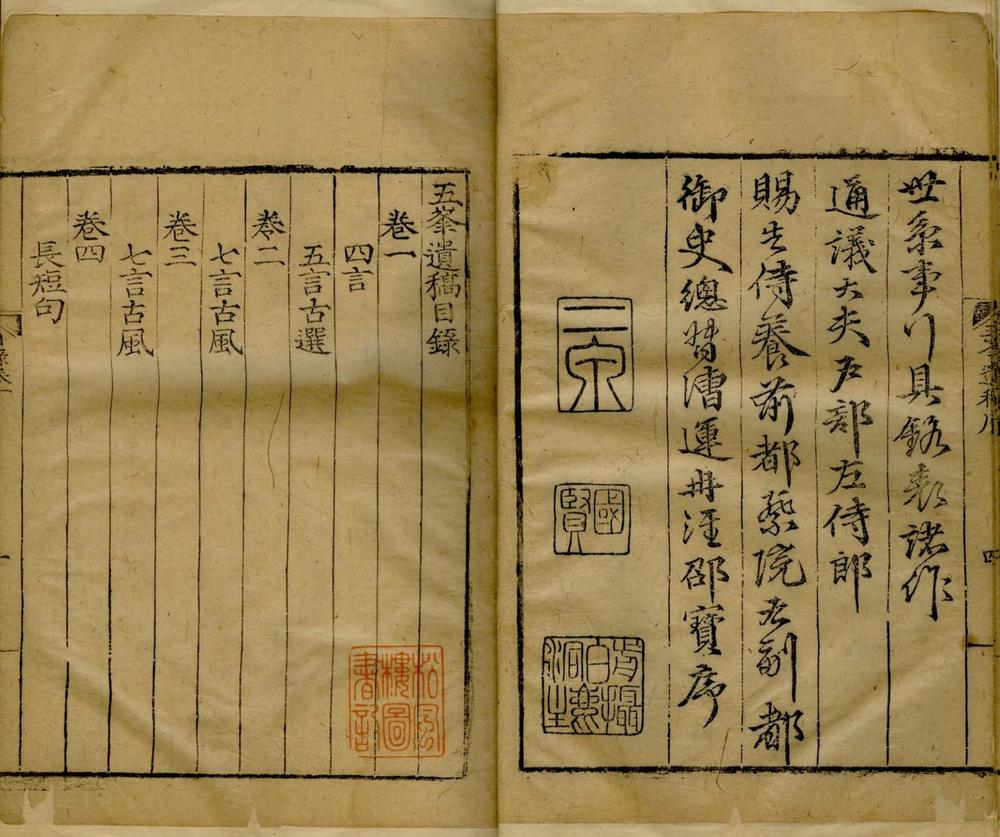 世系事行具銘表諸作
通議大夫戶部左侍郎
賜告侍養前都察院右副都
御史總督漕運毋洰邵寶序
二泉
國賢
五峯遺稿目錄
卷一
四言
五言古選
卷二
七言古風
卷三
七言古風
卷四
長短句
松風樓圖書記